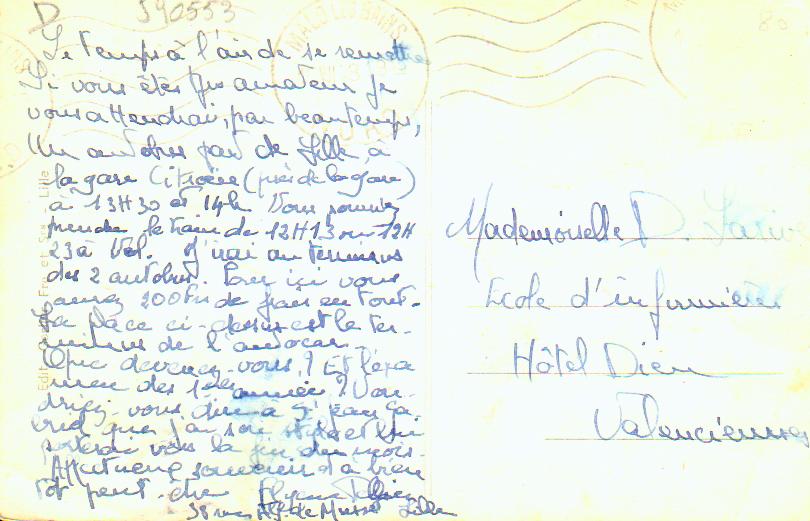 D
590553
Le temps à l'air de se remettre
Si vous êtes amateur je
vous attendrai, par beau temps,
Un autobus part de Lille, à
la gare Citroën (près de la gare)
à 13H30 et 14h Vous pourriez
prendre le train de 12H13 ou 12H
23 à Val. J'irai au terminus
des 2 autobus. Pour ici vous
aurez 200 frs de frais en tout.
La place ci-dessus est le ter-
minus de l'autocar.
Que devenez-vous? Et l'exa
men des 1ères année? Vou-
driez-vous dire à
que j'ai son et lui
posterai vers la fin du mois.
Affectueux souvenir et à bien
tôt peut-être
38 rue Alf. de Musset Lille
Mademoiselle D.
Ecole d'infirmières
Hôtel Dieu
Valenciennes
MALO LES BAINS
NORD
Edit.
Lille